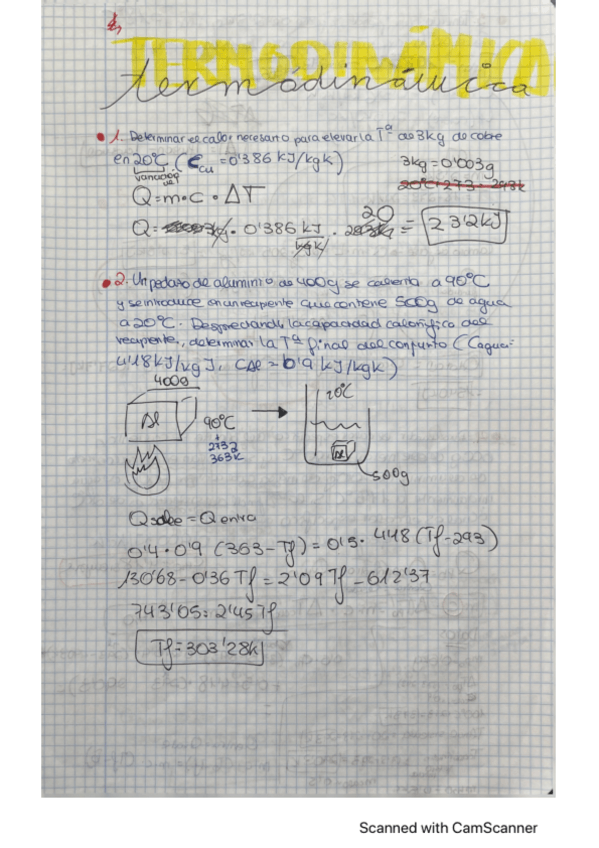 TERMODINÁMICA
termodinámica
1. Determinar el calor necesario para elevar la Tª de 3kg de cobre
en 20ºC (c_cu = 0'386 KJ/kgK)
3kg = 0'003g
20ºC + 273 = 293k
Q = m · c · ΔT
Q = · 0'386 KJ/kgK · 20 = 23'2kJ
2. Un pedazo de aluminio de 400g se calienta a 90ºC
y se introduce en un recipiente que contiene 500g de agua
a 20ºC. Despreciando la capacidad calorífica del
recipiente, determinar la Tª final del conjunto (Cagua:
4'18 KJ/kg J, CAl = 0'9 kJ/kgK)
400g
Al
90ºC
+
273
363k
20ºC
Al
500g
Q cede = Q entra
0'4 · 0'9 (363 - Tf) = 0'5 · 4'18 (Tf - 293)
130'68 - 0'36 Tf = 2'09 Tf - 612'37
743'05 = 2'45 Tf
Tf = 303'28k
Scanned with CamScanner